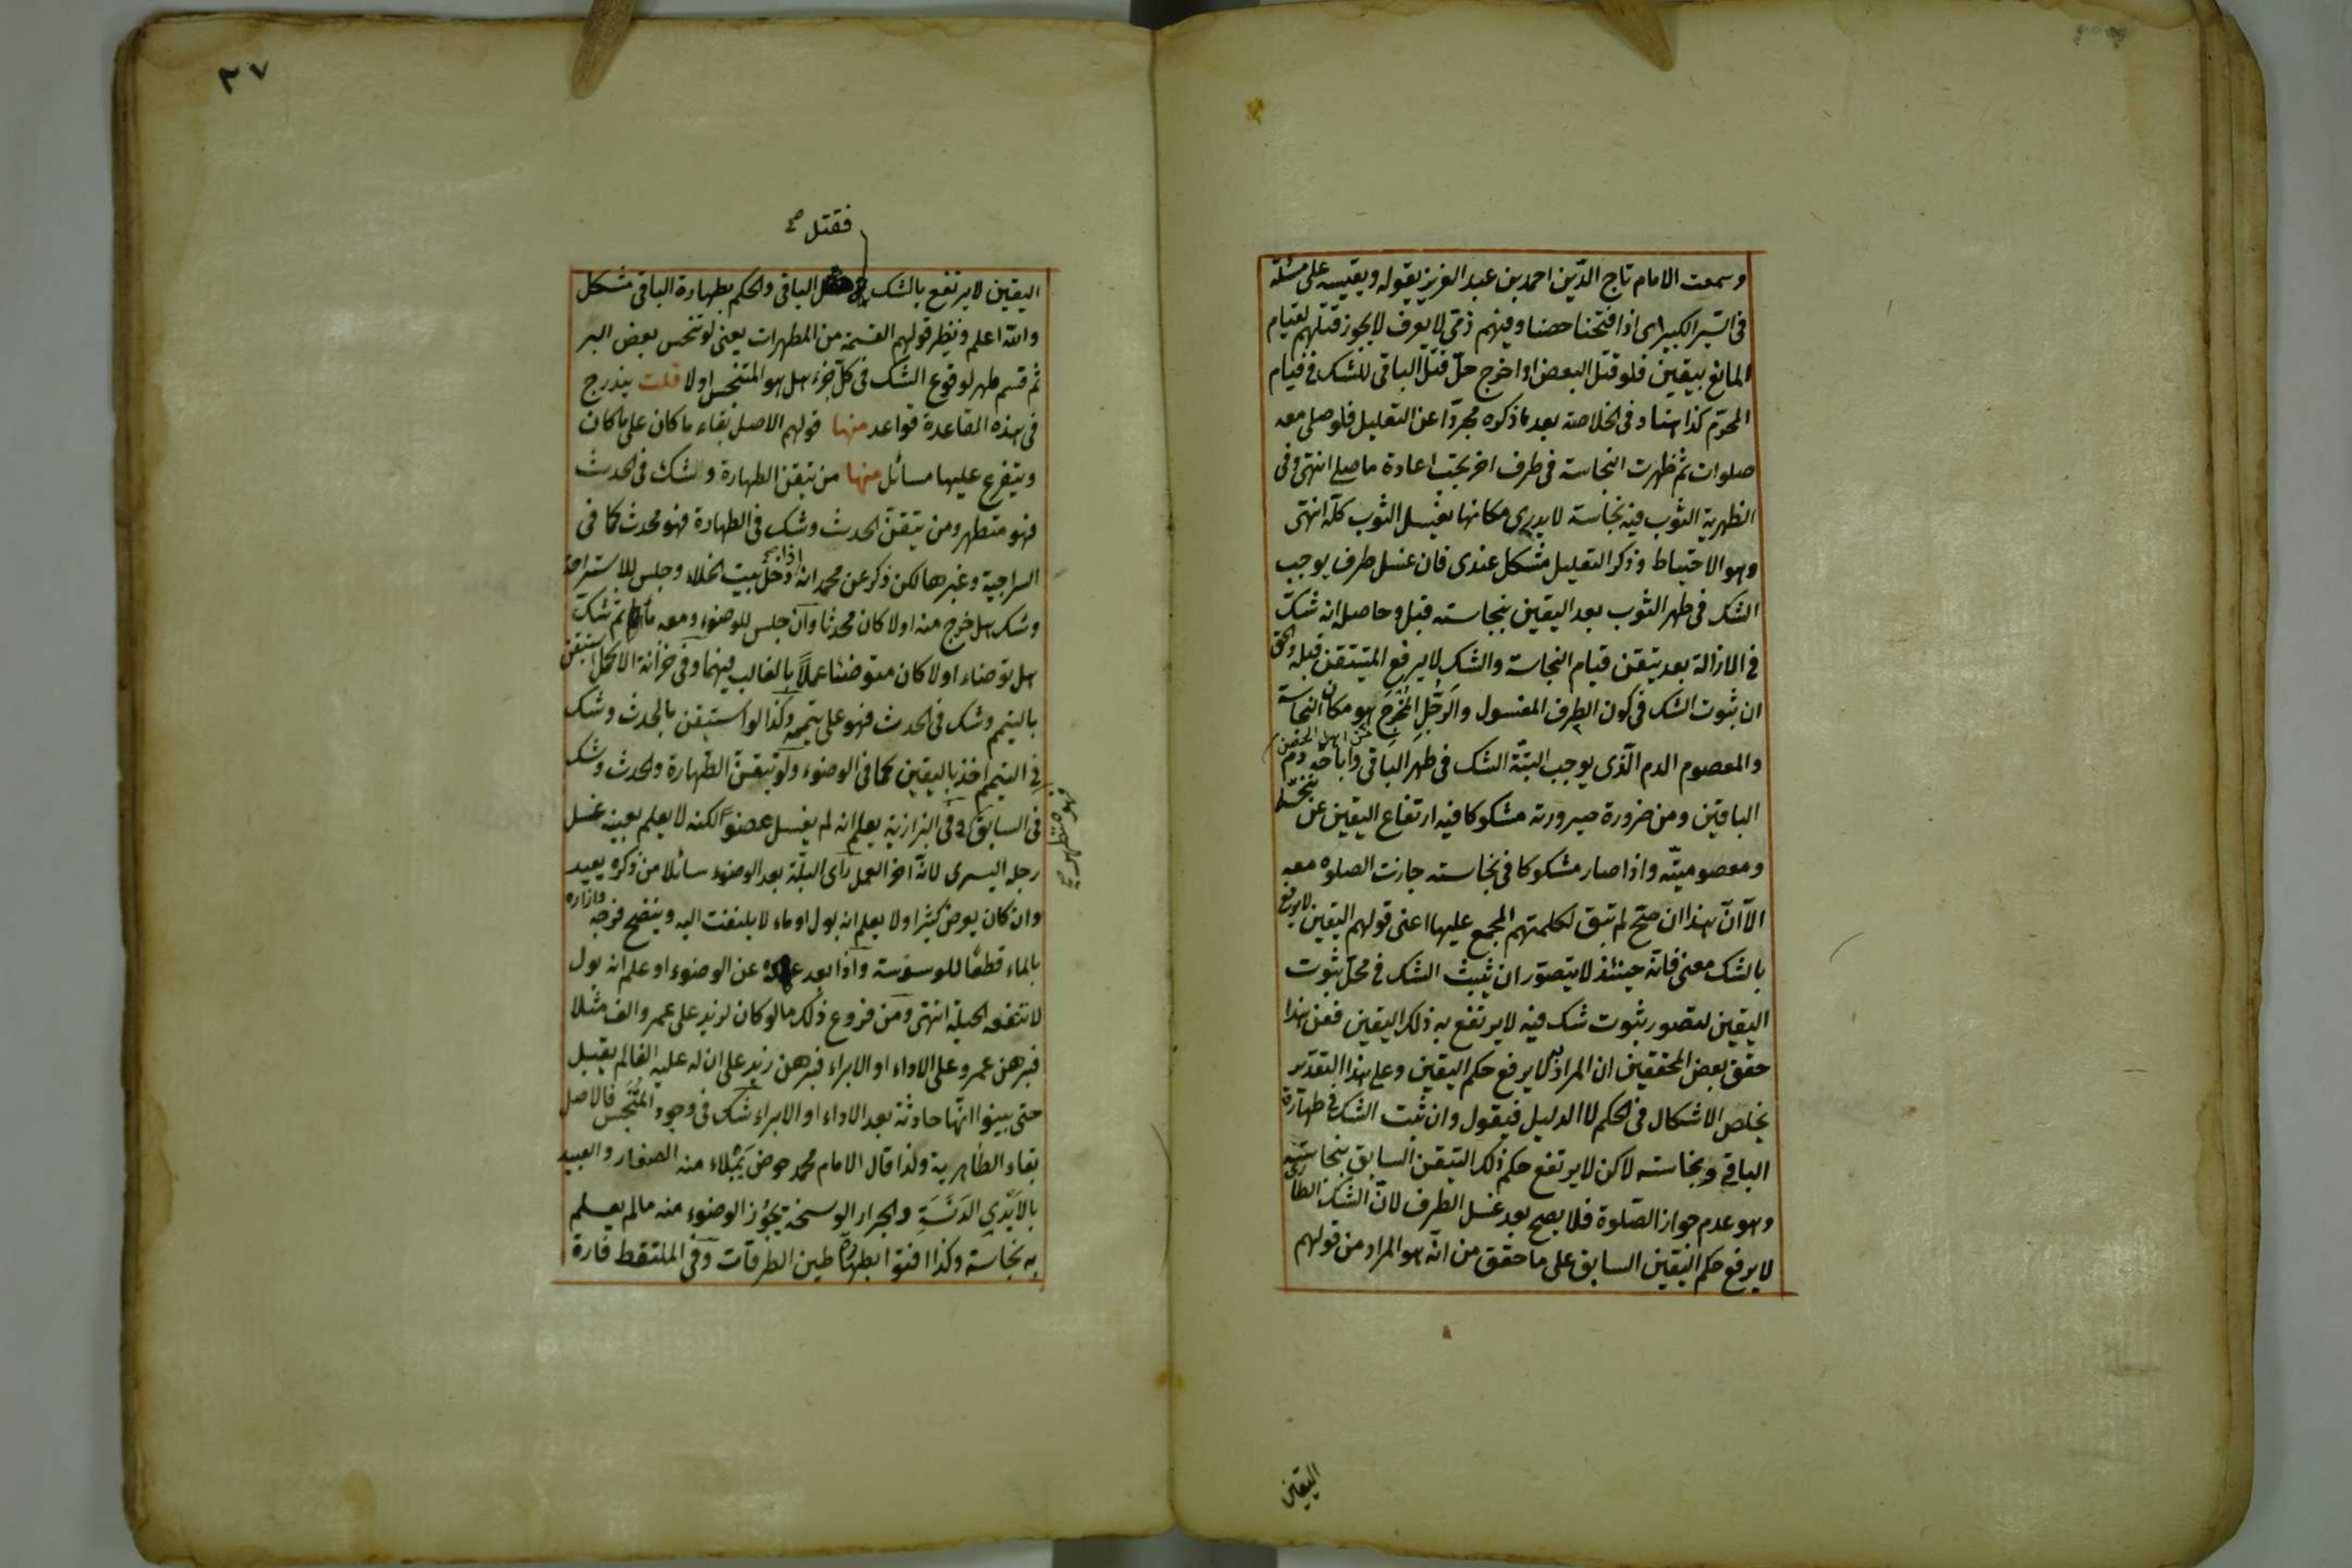 وسمعت الامام تاج الدّين احمد بن عبد العزيز يقوله ويقيسه على مسئلة
فى السّير الكبير اى اذا فتحنا حصنا وفيهم ذمّى لا يعرف لا يجوز قتلهم لقيام
المانع بيقين فلو قتل البعض او اخرج حلّ قتل الباقى للشك فى قيام
المحرّم كذا هنا وفى الخلاصة بعد ما ذكره مجرّدا عن التعليل فلو صلى معه
صلوات ثم ظهرت النجاسة فى طرف اخر يجب اعادة ما صلى انتهى وفى
الظهرية الثوب فيه نجاسة لا يدرى مكانها يغسل الثوب كلّه انتهى
وهو الاحتياط وذكر التعليل مشكل عندى فان غسل طرف يوجب
الشك فى طهر الثوب بعد اليقين بنجاسته قبل وحاصله انه شك
فى الازالة بعد تيقن قيام النجاسة والشك لا يرفع المتيقن قبله والحق
ان ثبوت الشك فى كون الطرف المغسول والرّجل المخرج هو مكان النجاسة
والمعصوم الدم الّذى يوجب البتّة الشك فى طهر الباقى واباحة دم
من اهل الحصن
الباقين ومن ضرورة صيرورته مشكوكا فيه ارتفاع اليقين عن تنجّسه
ومعصوميّته واذا صار مشكوكا فى نجاسته جازت الصلوة معه
الّا انّ هذا ان صحّ لم تبق لكلمتهم المجمع عليها اعنى قولهم اليقين لا يرفع
بالشك معنى فانه حينئذ لا يتصوّر ان يثبت الشك فى محلّ ثبوت
اليقين لتصور ثبوت شك فيه لا يرتفع به ذلك اليقين فعن هذا
حقق بعض المحققين ان المراد به لا يرفع حكم اليقين وعلى هذا التقدير
يخلص الاشكال فى الحكم لا الدليل فيقول وان ثبت الشك فى طهارة
الباقى ونجاسته لاكن لا يرتفع حكم ذلك التيقن السابق بنجاسته
وهو عدم جواز الصّلوة فلا يصح بعد غسل الطرف لانّ الشك الطارى
لا يرفع حكم اليقين السابق على ما حقق من انّه هو المراد من قولهم
اليقين
٣٧
فقتل صح
اليقين لا يرتفع بالشك الباقى والحكم بطهارة الباقى مشكل
والله اعلم ونظير قولهم القسمة من المطهرات يعنى لو تنجس بعض البر
ثم قسم طهر لوقوع الشك فى كل جزء هل هو المتنجس اولا قلت يندرج
فى هذه القاعدة قواعد منها قولهم الاصل بقاء ما كان على ما كان
ويتفرع عليها مسائل منها من تيقن الطهارة والشك فى الحدث
فهو متطهر ومن تيقن الحدث وشك فى الطهارة فهو محدث كما فى
السراجية وغيرها لكن ذكر عن محمد انه اذا دخل بيت الخلاء وجلس للاستراحة
وشك هل خرج منه اولا كان محدثا وان جلس للوضوء ومعه ماء ثم شك
هل توضاء اولا كان متوضئا عملاً بالغالب فيهما وفى خزانة الاكمل استيقن
بالتيمم وشك فى الحدث فهو على تيممه وكذا لو استيقن بالحدث وشك
فى التيمم اخذ باليقين كما فى الوضوء ولو تيقن الطهارة والحدث وشك
فى السابق وفى البزازية يعلم انه لم يغسل عضوًا لكنه لا يعلم بعينه غسل
رجله اليسرى لانّه اخر العمل رأى البلّة بعد الوضوء سائلا من ذكره يعيد
وان كان يعرض كثيرا ولا يعلم انه بول او ماء لا يلتفت اليه وينضح فرجه وازاره
بالماء قطعًا للوسوسة واذا بعد عهده عن الوضوء او علم انه بول
لا تنفعه الحيلة انتهى ومن فروع ذلك ما لو كان لزيد على عمرو الف مثلا
فبرهن عمرو على الاداء او الابراء فبرهن زيد على ان له عليه الفا لم يقبل
حتى يبينوا انّها حادثة بعد الاداء او الابراء شك فى وجود المنجس فالاصل
بقاء الطاهرية ولذا قال الامام محمد حوض يملاء منه الصغار والعبيد
بالايدى الدنسة والجرار الوسخة يجوز الوضوء منه ما لم يعلم
به نجاسة وكذا افتوا بطهارة طين الطرقات وفى الملتقط فارة